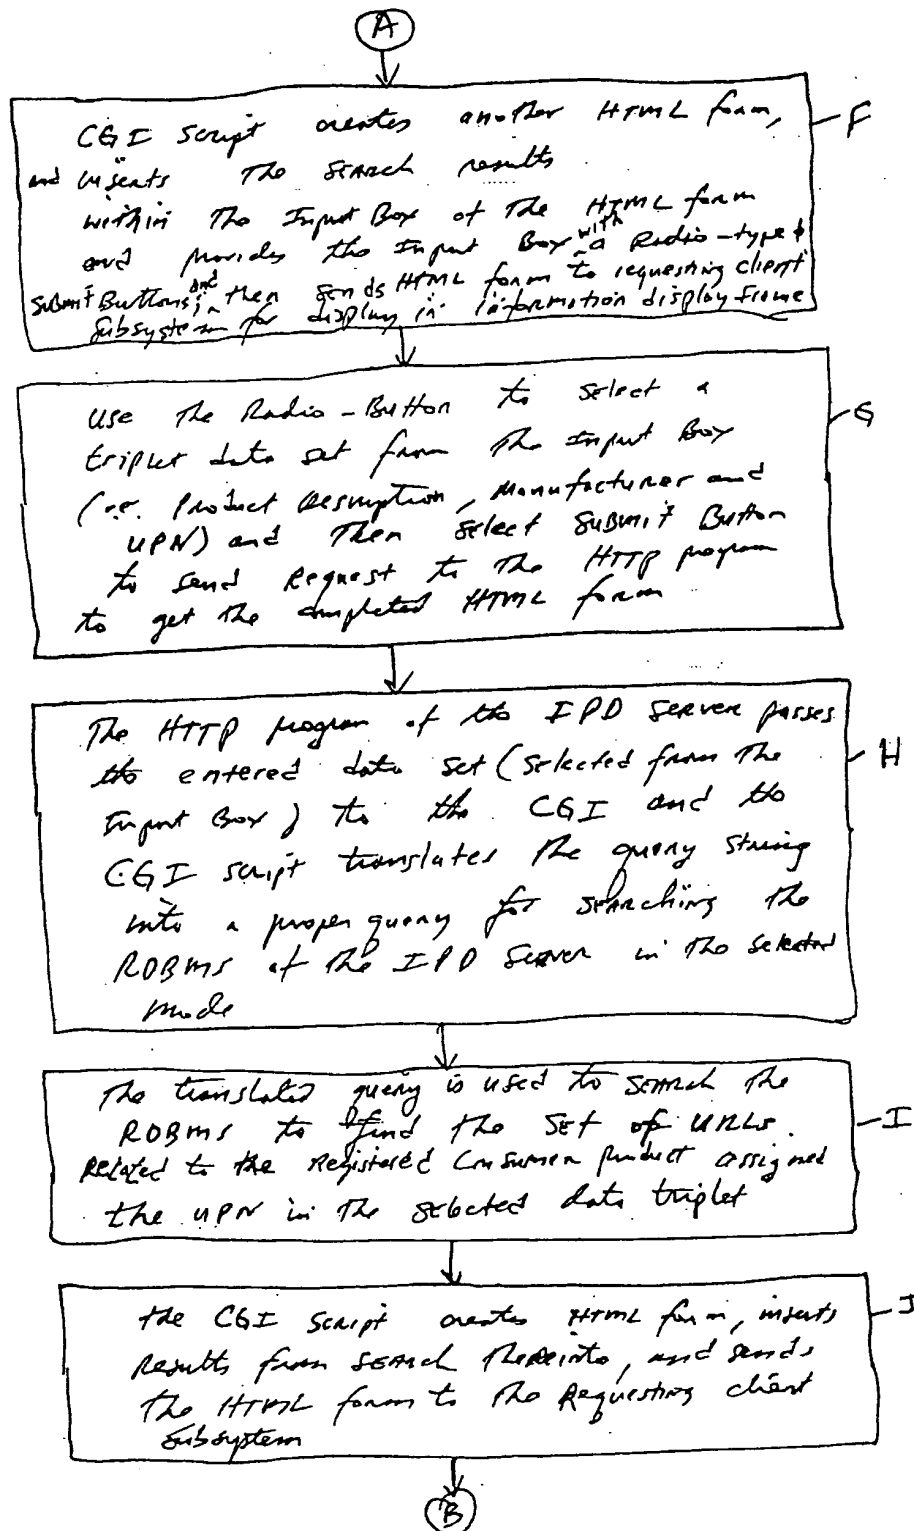 A
CGI Script creates another HTML form, F
and inserts the search results
within the Input Box of the HTML form
and provides the Input Box with a Radio-type &
Submit Buttons; and then sends HTML form to requesting client
Subsystem for display in information display frame
use the Radio-Button to select a G
triplet data set from the Input Box
(i.e. Product Description, Manufacturer and
UPN) and then select Submit Button
to send Request to the HTTP program
to get the completed HTML form
The HTTP program of the IPD Server passes
the entered data set (selected from the H
Input Box) to the CGI and the
CGI script translates the query string
into a proper query for searching the
RDBMS of the IPD Server in the selected
mode
The translated query is used to search the
RDBMS to find the set of URLs I
Related to the registered Consumer product assigned
the UPN in the selected data triplet
the CGI script creates HTML form, inserts J
Results from search thereinto, and sends
the HTML form to the Requesting client
Subsystem
B